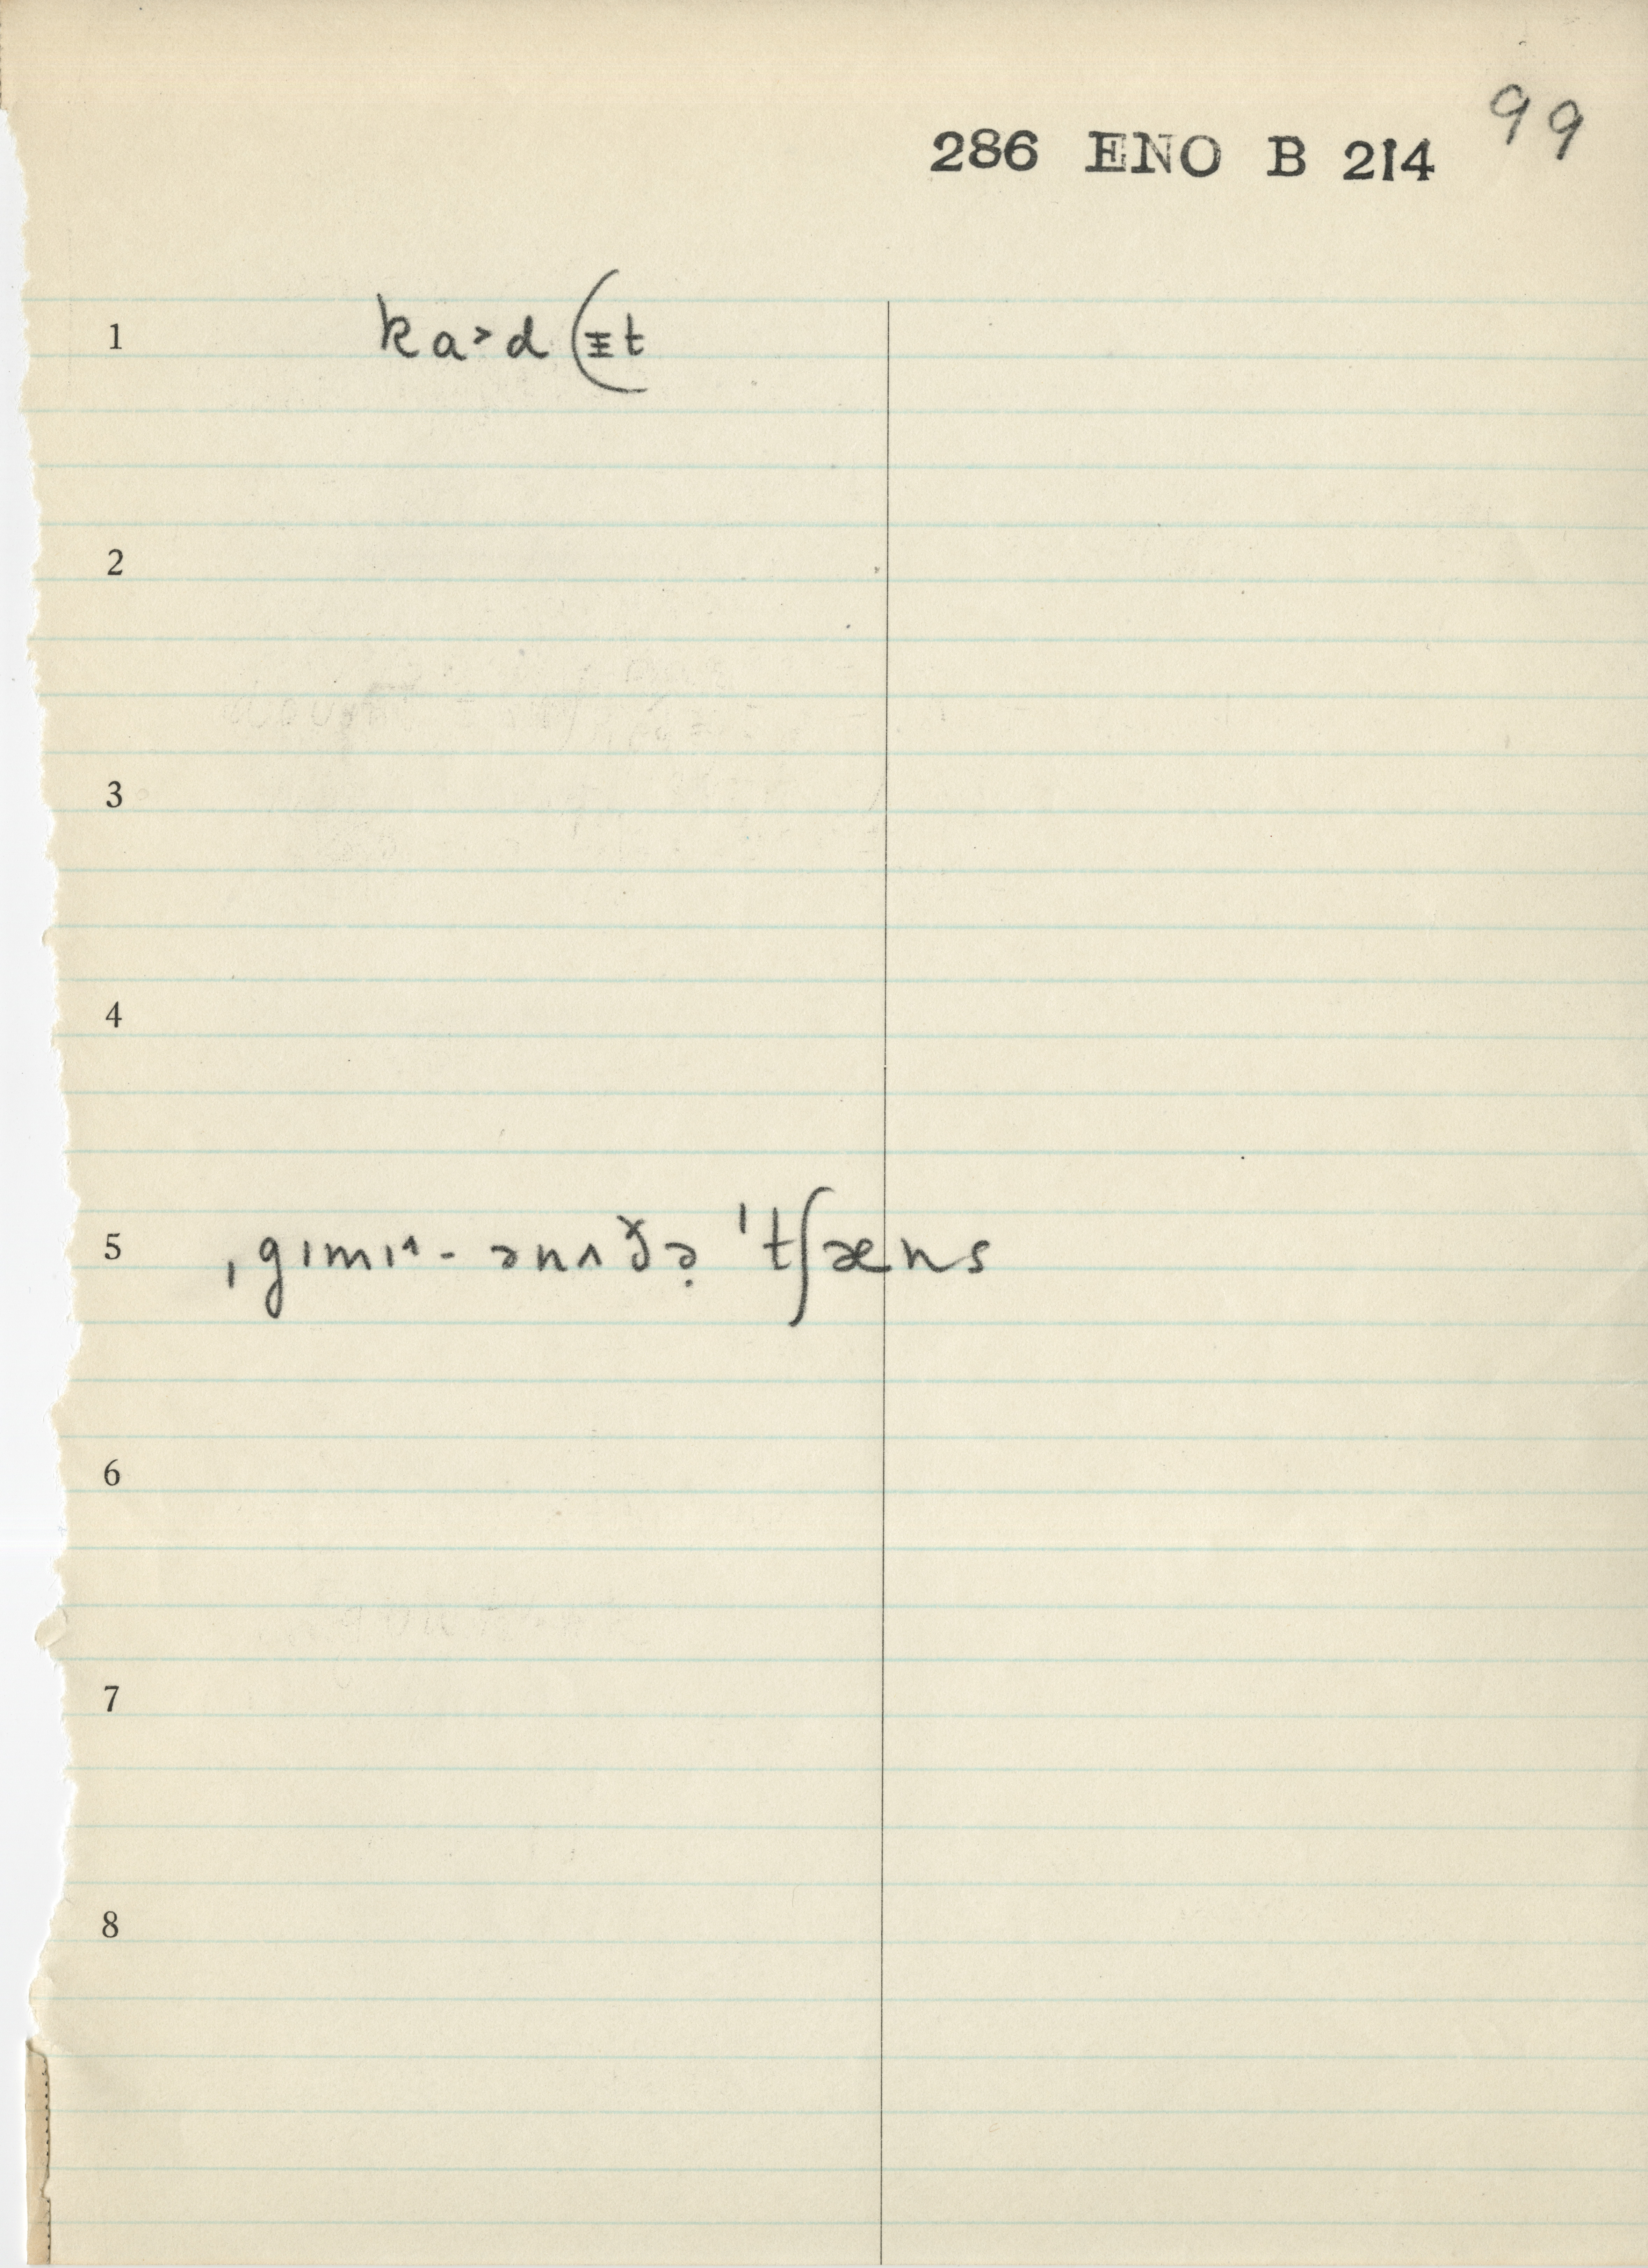 99
286 ENO B 214
1 ka˃d (ᵻt
2
3
4
5 ˌgɪmɪ˄- ənʌðə̣ ˈtʃæns
6
7
8